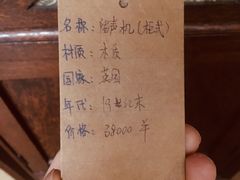 名称：留声机(柜式)
材质：木质
国家：英国
年代：19世纪末
价格：38000 年